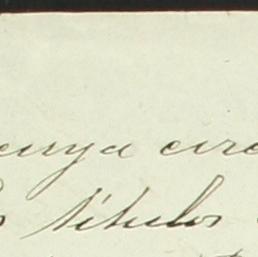 cuya circ
s títulos